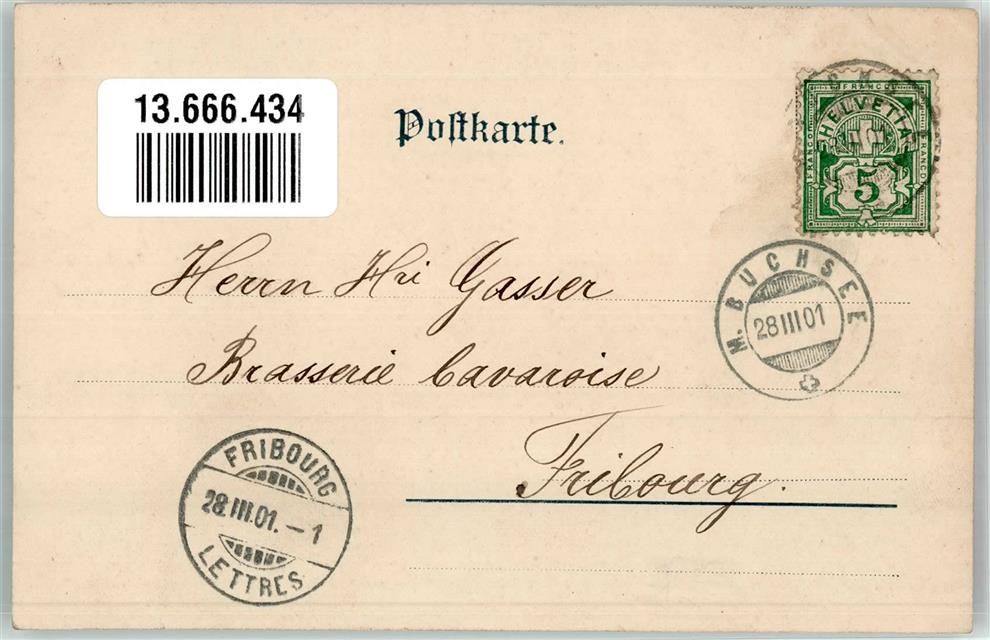 13.666.434
Postkarte.
FRANCO
HELVETIA
FRANCO
FRANCO
5
M. BUCHSEE
28 III 01
Herrn Hri Gasser
Brasserie bavaroise
Fribourg.
FRIBOURG
28.III.01. – 1
LETTRES